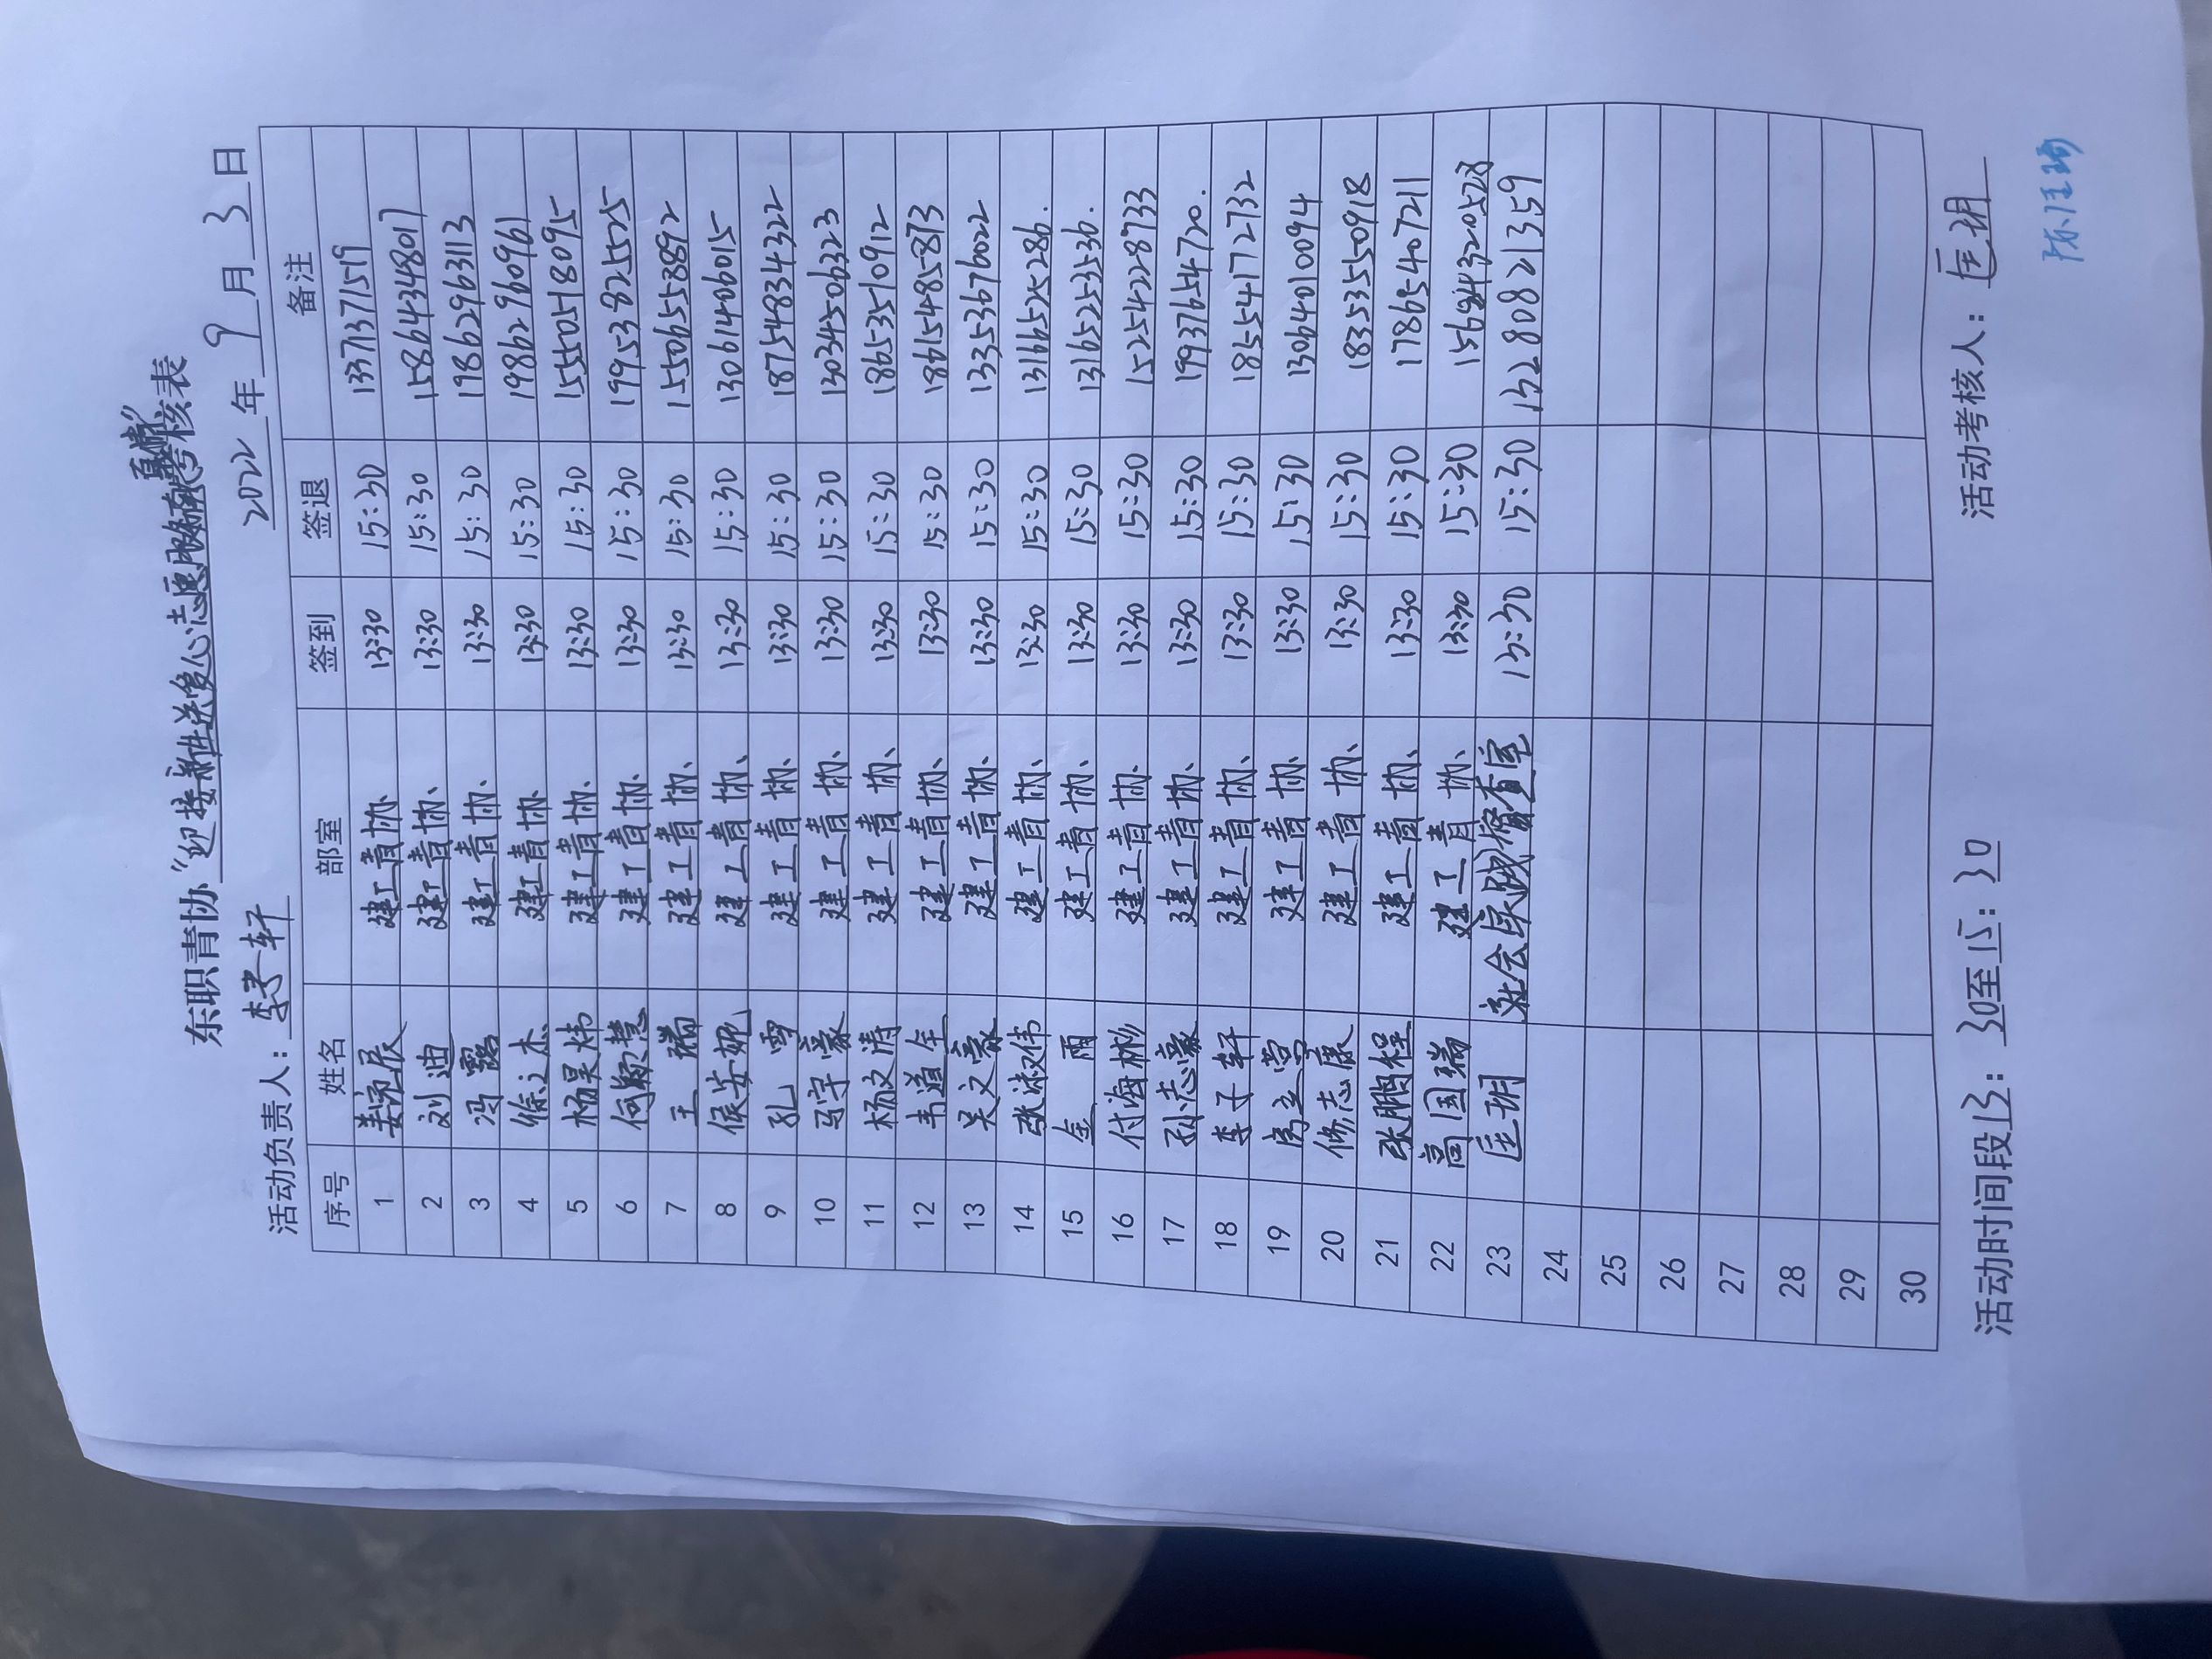 东职青协“迎接新生送爱心志愿服务活动”考核表
2022年9月3日
活动负责人：李孝轩
序号 姓名 部室 签到 签退 备注
1 姜宛辰 建工青协 13:30 15:30 13713771519
2 刘迪 建工青协 13:30 15:30 15864348017
3 冯露 建工青协 13:30 15:30 19862963113
4 徐之杰 建工青协 13:30 15:30 19862960961
5 杨昊炜 建工青协 13:30 15:30 15550518095
6 何颖慧 建工青协 13:30 15:30 19953825525
7 王璐 建工青协 13:30 15:30 15065538892
8 侯安妮 建工青协 13:30 15:30 13061406015
9 孔雪 建工青协 13:30 15:30 18754834322
10 马宇豪 建工青协 13:30 15:30 13034506323
11 杨文涛 建工青协 13:30 15:30 18653510912
12 韦道全 建工青协 13:30 15:30 18615485873
13 吴文豪 建工青协 13:30 15:30 13353676022
14 张淑伟 建工青协 13:30 15:30 13165252286.
15 金雨 建工青协 13:30 15:30 13165253536.
16 付海彬 建工青协 13:30 15:30 15254228733
17 孙志豪 建工青协 13:30 15:30 19937654720.
18 李子轩 建工青协 13:30 15:30 18554172732
19 房立营 建工青协 13:30 15:30 13064010094
20 修志康 建工青协 13:30 15:30 18353550918
21 张鹏程 建工青协 13:30 15:30 17865407211
22 高国瑞 建工青协 13:30 15:30
23 匡玥 社会实践督查室 13:30 15:30 13280821359
24
25
26
27
28
29
30
活动时间段13：30至15：30 活动考核人：匡玥